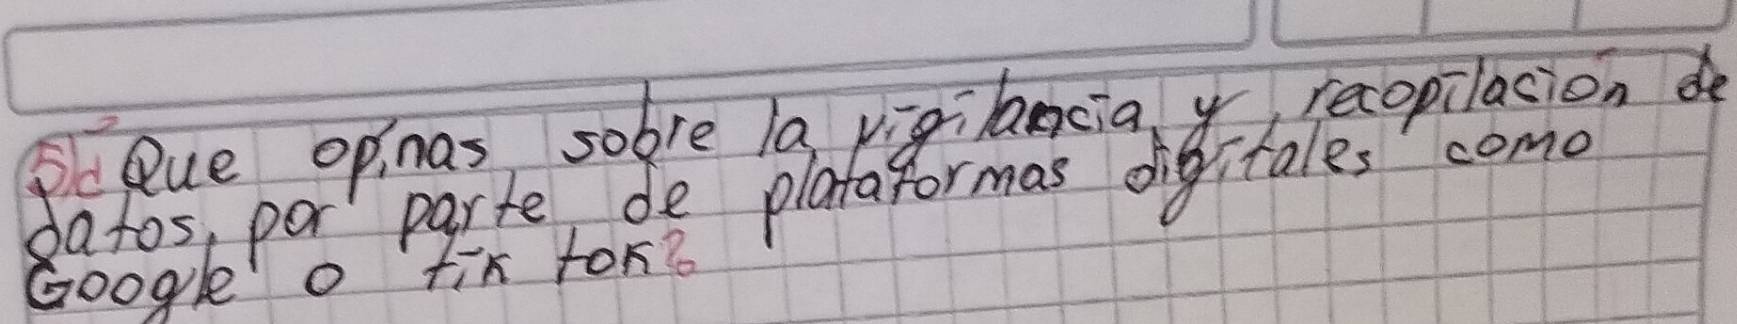 5¿ Que opinas sobre la vigilancia y recopilación de
datos, por parte de plataformas digitales como
Google o tik tok?